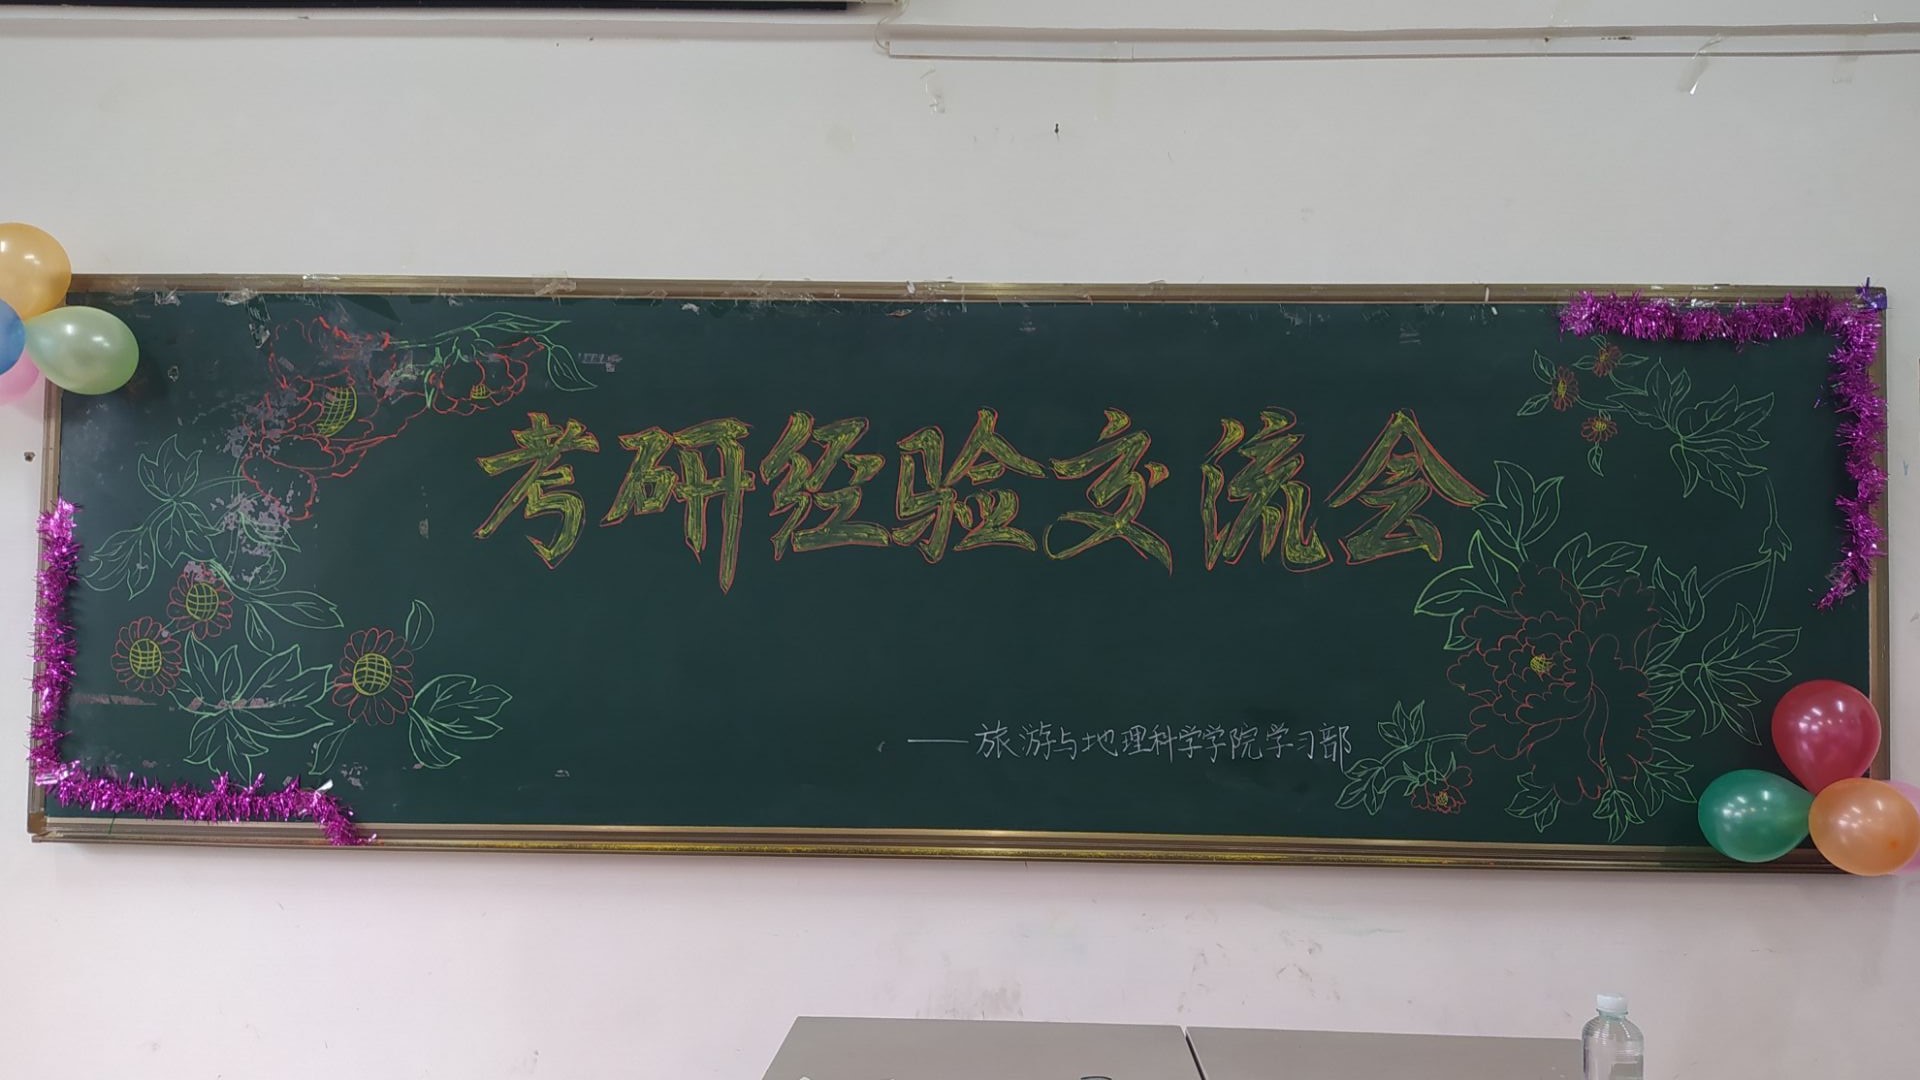 考研经验交流会
——旅游与地理科学学院学习部